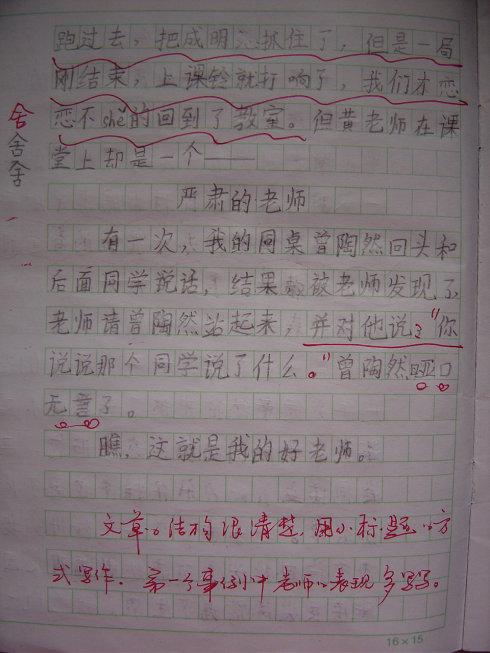 跑过去，把成明亮抓住了，但是一局
刚结束，上课铃就打响了，我们才恋
恋不shě的回到了教室。但黄老师在课
舍
舍
舍
堂上却是一个——
严肃的老师
有一次，我的同桌曾陶然回头和
后面同学说话，结果被老师发现了
老师请曾陶然站起来，并对他说：“你
说说那个同学说了什么。”曾陶然哑口
无言了。
瞧，这就是我的好老师。
文章的结构很清楚，用小标题的方
式写作。第一个事例中老师的表现多写写。
16×15